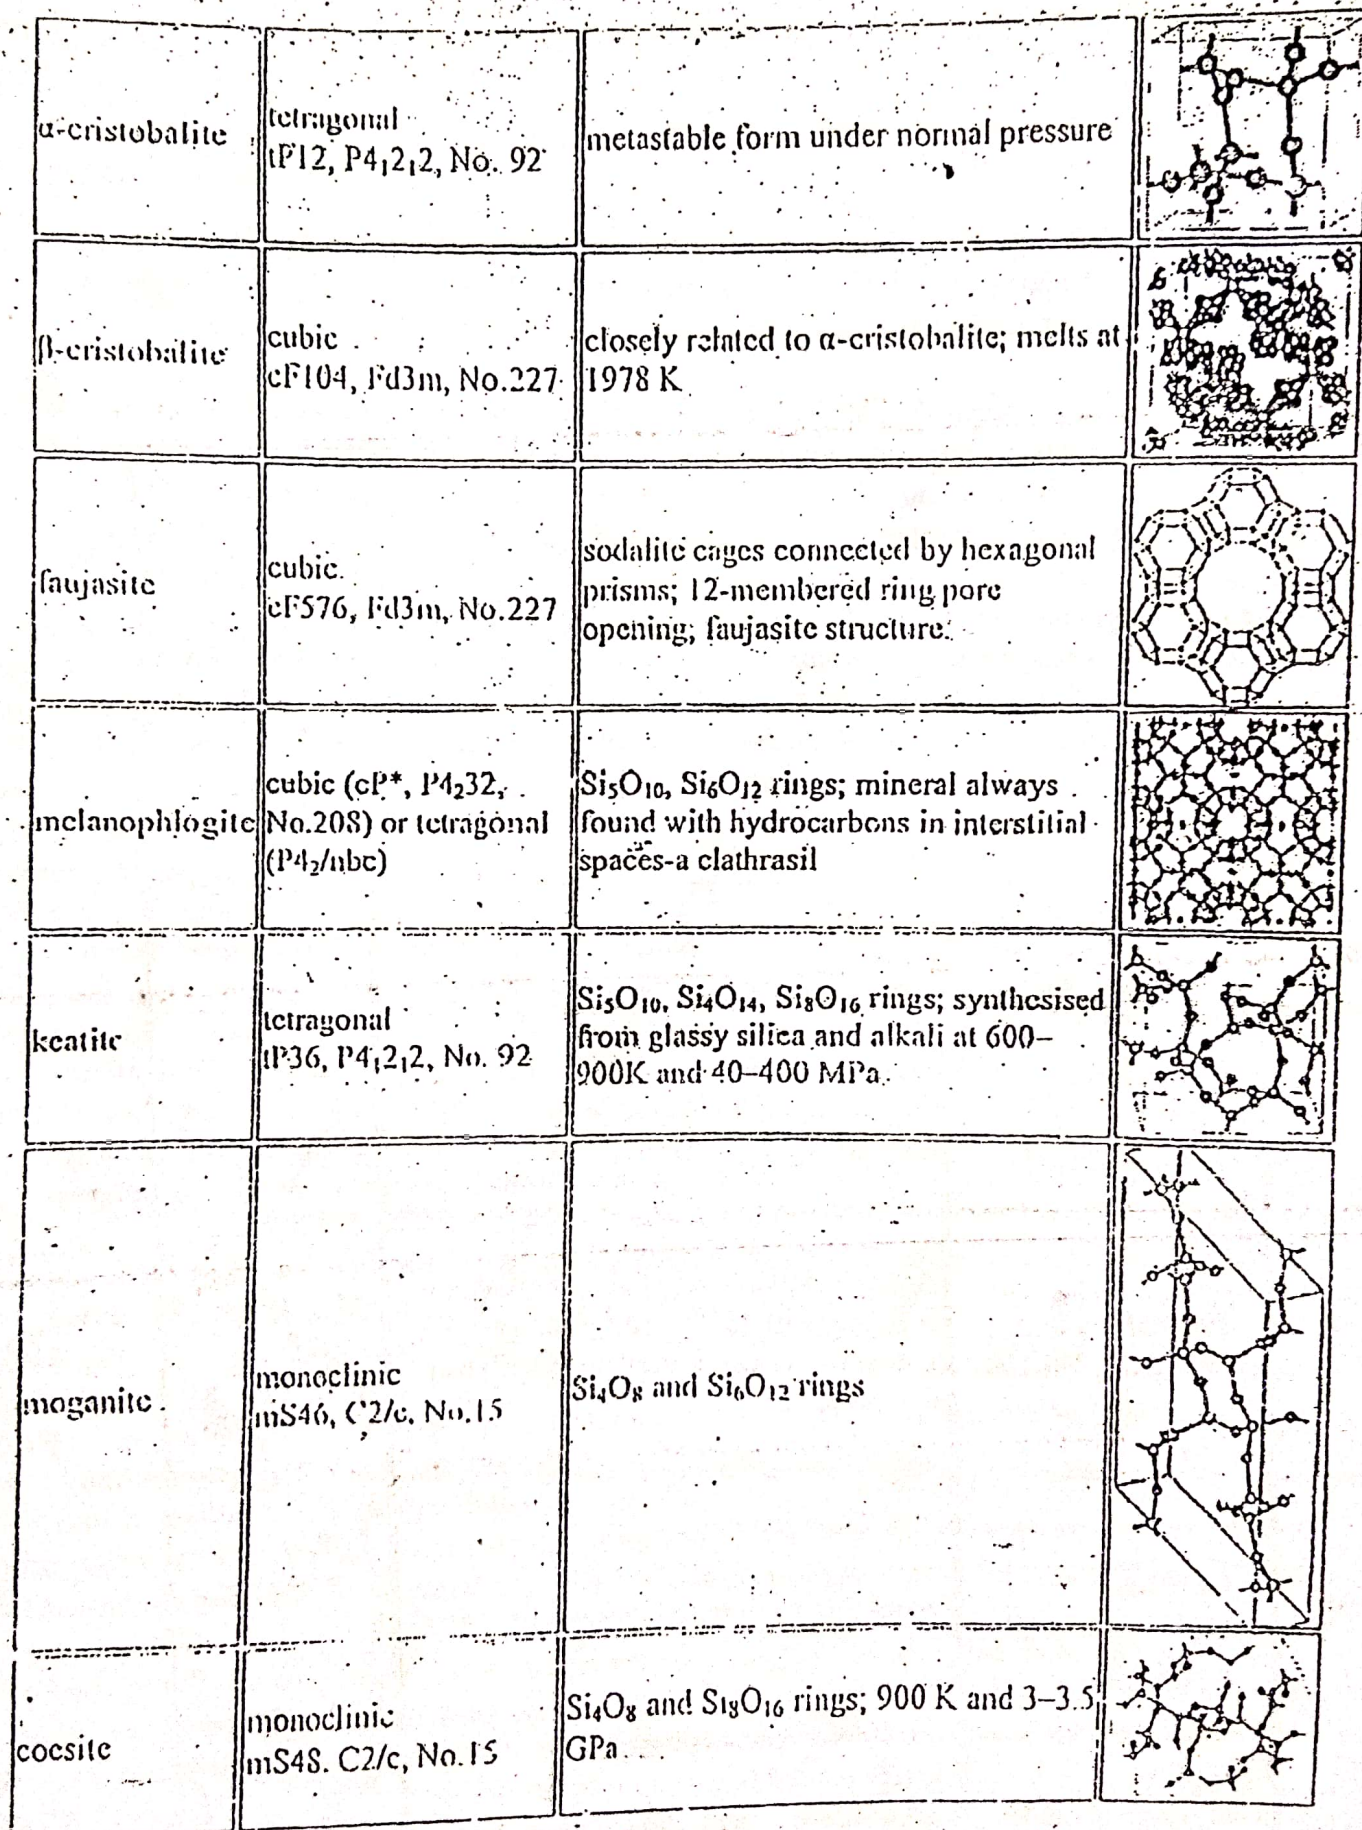 α-cristobalite
tetragonal
tP12, P4₁2₁2, No. 92
metastable form under normal pressure
β-cristobalite
cubic
cF104, Fd3m, No.227
closely related to α-cristobalite; melts at
1978 K
faujasite
cubic
cF576, Fd3m, No.227
sodalite cages connected by hexagonal
prisms; 12-membered ring pore
opening; faujasite structure.
melanophlogite
cubic (cP*, P4₂32,
No.208) or tetragonal
(P4₂/nbc)
Si₅O₁₀, Si₆O₁₂ rings; mineral always
found with hydrocarbons in interstitial
spaces-a clathrasil
keatite
tetragonal
tP36, P4₁2₁2, No. 92
Si₅O₁₀, Si₄O₁₄, Si₈O₁₆ rings; synthesised
from glassy silica and alkali at 600–
900K and 40–400 MPa
moganite
monoclinic
mS46, C2/c, No.15
Si₄O₈ and Si₆O₁₂ rings
coesite
monoclinic
mS48. C2/c, No.15
Si₄O₈ and Si₈O₁₆ rings; 900 K and 3–3.5
GPa